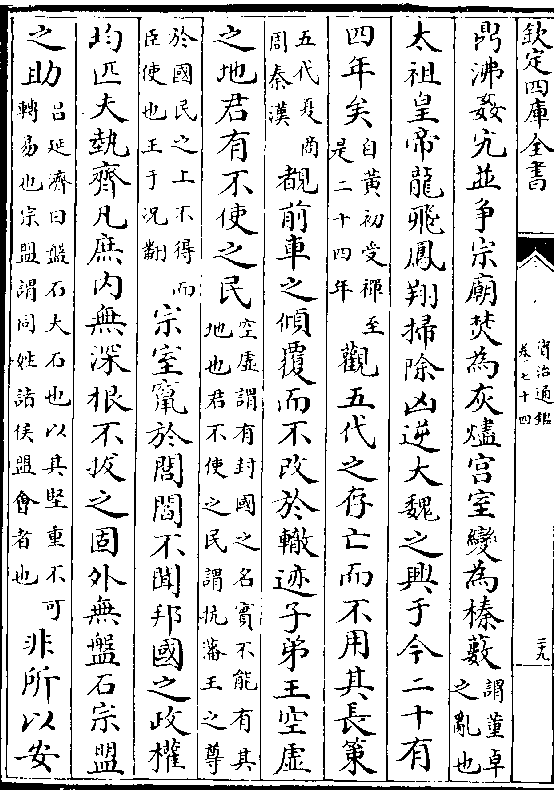 欽定四庫全書
資治通鑑
卷七十四
三九
鼎沸姦宄並争宗廟焚為灰燼宫室變為榛藪謂董卓之亂也
太祖皇帝龍飛鳳翔掃除凶逆大魏之興于今二十有
四年矣自黄初受禪至是二十四年觀五代之存亡而不用其長策
五代夏商周秦漢覩前車之傾覆而不改於轍迹子弟王空虚
之地君有不使之民空虚謂有封國之名實不能有其地也君不使之民謂抗藩王之尊
於國民之上不得而臣使也王于况翻宗室竄於閭閻不聞邦國之政權
均匹夫勢齊凡庶内無深根不拔之固外無盤石宗盟
之助吕延濟曰盤石大石也以其堅重不可轉易也宗盟謂同姓諸侯盟會者也非所以安